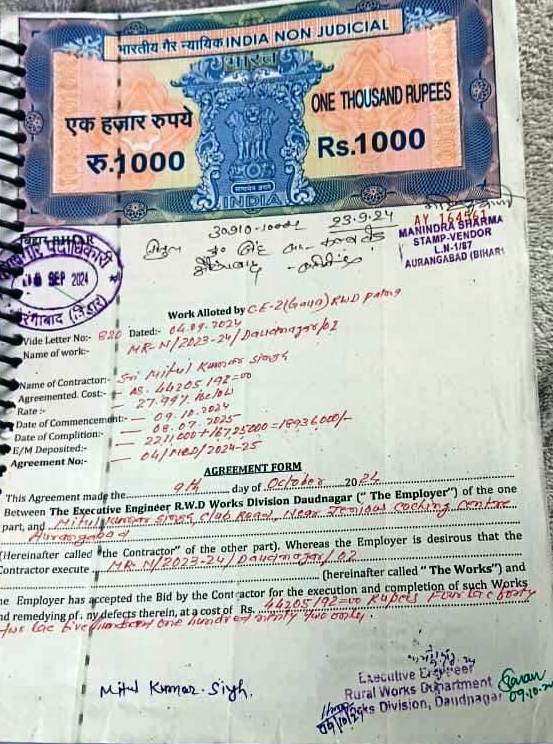 भारतीय गैर न्यायिक INDIA NON JUDICIAL
भारत
एक हज़ार रुपये
रु.1000
ONE THOUSAND RUPEES
Rs.1000
सत्यमेव जयते
INDIA
बिहार BIHAR
23.9.24
AY 164461
MANINDRA SHARMA
STAMP-VENDOR
L.N-1/87
AURANGABAD (BIHAR)
SEP 2024
Work Alloted by C.E-2(Gaya) RWD Patna
Vide Letter No:- 820 Dated:- 04.09.2024
Name of work:- MR-N/2023-24/Daudnagar/02
Name of Contractor:- Sri Mitul Kumar Singh
Agreemented. Cost:- RS. 44205192=00
Rate :- 27.99% below
Date of Commencement:- 09.10.2024
Date of Completion:- 08.07.2025
E/M Deposited:- 2211000+16725000=18936000/-
Agreement No:- 04/MBD/2024-25
AGREEMENT FORM
This Agreement made the 9th day of October 2024
Between The Executive Engineer R.W.D Works Division Daudnagar (" The Employer") of the one
part, and Mitul Kumar Singh, Club Road, Near Coching Centre
Aurangabad
(Hereinafter called "the Contractor" of the other part). Whereas the Employer is desirous that the
Contractor execute MR-N/2023-24/Daudnagar/02
(hereinafter called "The Works") and
he Employer has accepted the Bid by the Contractor for the execution and completion of such Works
nd remedying of ny defects therein, at a cost of Rs. 44205192=00 Rupees Four
one hundred ninty two only.
Mitul Kumar Singh.
Executive Engineer
Rural Works Department
Works Division, Daudnagar
09/10/24
09.10.24